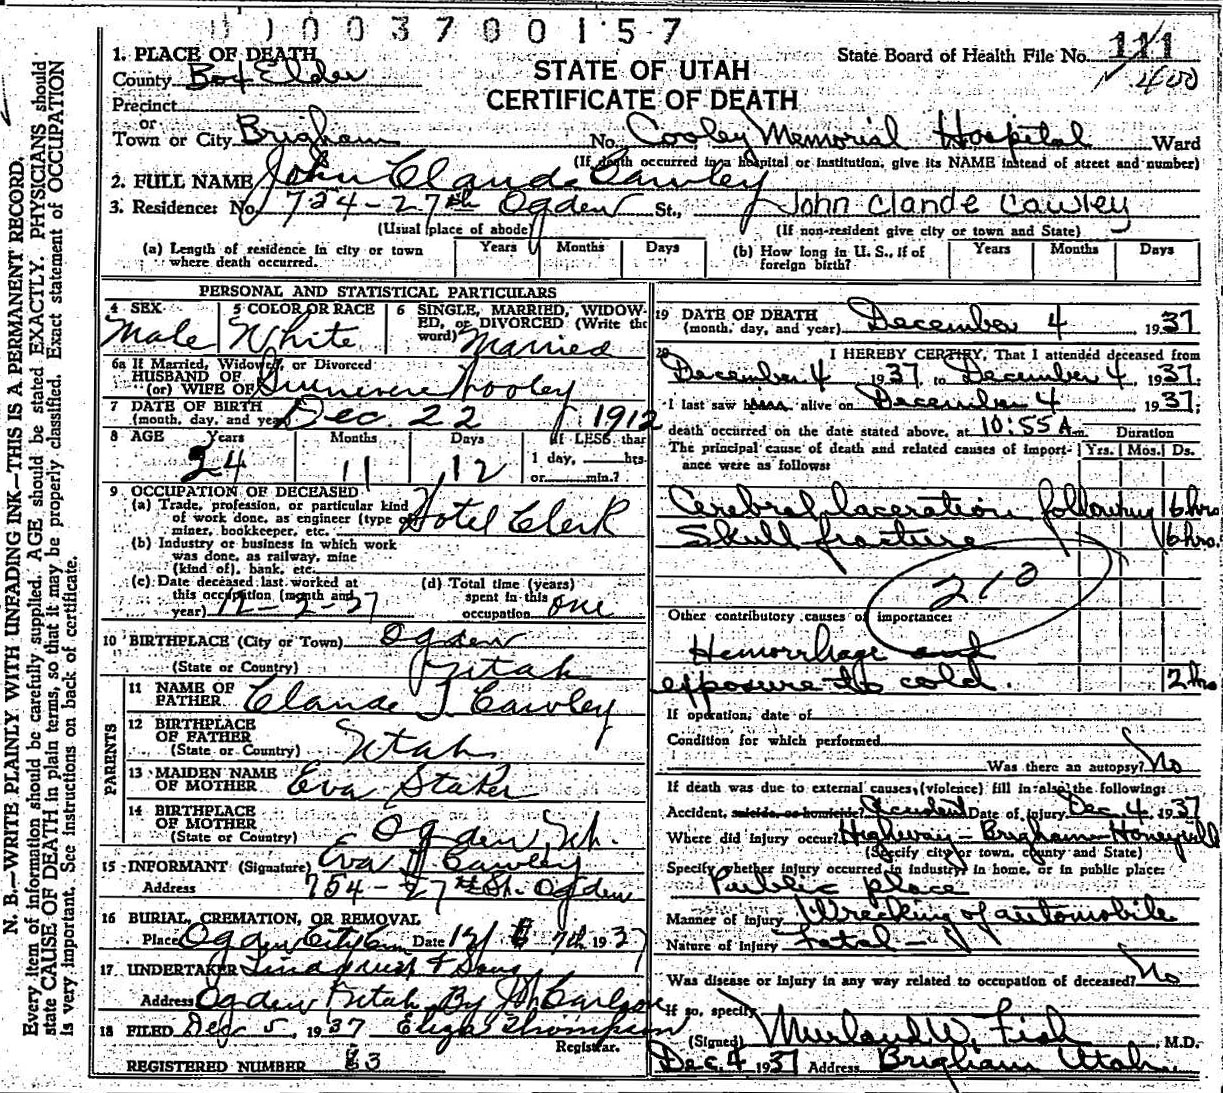 003700157
1. PLACE OF DEATH
State Board of Health File No. 111
400
County Box Elder
STATE OF UTAH
CERTIFICATE OF DEATH
Precinct
or
Town or City Brigham No. Cooley Memorial Hospital Ward
(If death occurred in a hospital or institution, give its NAME instead of street and number)
2. FULL NAME John Claude Cawley
3. Residence: No. 754-27th Ogden St., John Claude Cawley
(Usual place of abode) (If non-resident give city or town and State)
(a) Length of residence in city or town where death occurred. Years Months Days
(b) How long in U. S., if of foreign birth? Years Months Days
PERSONAL AND STATISTICAL PARTICULARS
4 SEX Male
5 COLOR OR RACE White
6 SINGLE, MARRIED, WIDOWED, or DIVORCED (Write the word) Married
6a If Married, Widowed, or Divorced
HUSBAND OF
(or) WIFE OF Guenevere Wooley
7 DATE OF BIRTH
(month, day, and year) Dec. 22 1912
8 AGE Years Months Days If LESS than
24 11 12 1 day, hrs.
or min.?
9 OCCUPATION OF DECEASED
(a) Trade, profession, or particular kind
of work done, as engineer (type of
miner, bookkeeper, etc. Hotel Clerk
(b) Industry or business in which work
was done, as railway, mine
(kind of), bank, etc.
(c) Date deceased last worked at
this occupation (month and
year) 12-2-37
(d) Total time (years)
spent in this
occupation one
10 BIRTHPLACE (City or Town) Ogden
(State or Country) Utah
PARENTS
11 NAME OF
FATHER Claude T. Cawley
12 BIRTHPLACE
OF FATHER
(State or Country) Utah
13 MAIDEN NAME
OF MOTHER Eva Staker
14 BIRTHPLACE
OF MOTHER
(State or Country) Ogden, Ut.
15 INFORMANT (Signature) Eva Cawley
Address 754-27th St. Ogden
16 BURIAL, CREMATION, OR REMOVAL
Place Ogden City Cem Date 12/ 7th 1937
17 UNDERTAKER Lindquist & Sons
Address Ogden Utah By Carlson
18 FILED Dec 5, 1937 Eliza Thompson
Registrar.
REGISTERED NUMBER 83
19 DATE OF DEATH
(month, day, and year) December 4, 1937
20 I HEREBY CERTIFY, That I attended deceased from
December 4 1937 to December 4, 1937;
I last saw him alive on December 4 1937;
death occurred on the date stated above, at 10:55 A.m. Duration
The principal cause of death and related causes of importance were as follows: Yrs. Mos. Ds.
Cerebral laceration following 6 hrs
Skull fracture 6 hrs.
210
Other contributory causes of importance:
Hemorrhage and
exposure to cold. 2 hrs
If operation, date of
Condition for which performed
Was there an autopsy? No
If death was due to external causes, (violence) fill in also the following:
Accident, suicide, or homicide? Accident Date of injury Dec 4, 1937
Where did injury occur? Highway - Brigham-Honeyville
(Specify city or town, county and State)
Specify whether injury occurred in industry, in home, or in public place:
Public place
Manner of injury Wrecking of automobile
Nature of injury Fatal -
Was disease or injury in any way related to occupation of deceased? No
If so, specify
(Signed) Merland W. Fish, M.D.
Dec. 4 1937 Address Brigham Utah
N. B.—WRITE PLAINLY WITH UNFADING INK—THIS IS A PERMANENT RECORD.
Every item of information should be carefully supplied. AGE should be stated EXACTLY. PHYSICIANS should
state CAUSE OF DEATH in plain terms, so that it may be properly classified. Exact statement of OCCUPATION
is very important. See instructions on back of certificate.